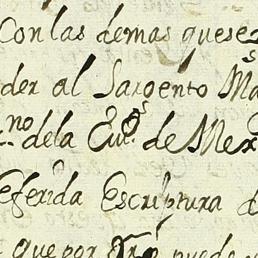 Con las demas que se
der al Sargento Ma
no de la Ciud de Mex
eferida Escriptura d
que por puede